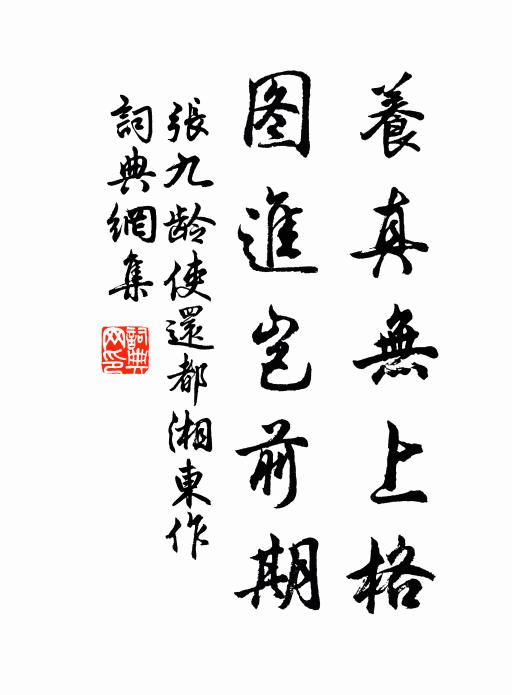 養真無上格
图進豈前期
張九龄使還都湘東作
詞典網集
詞典网印